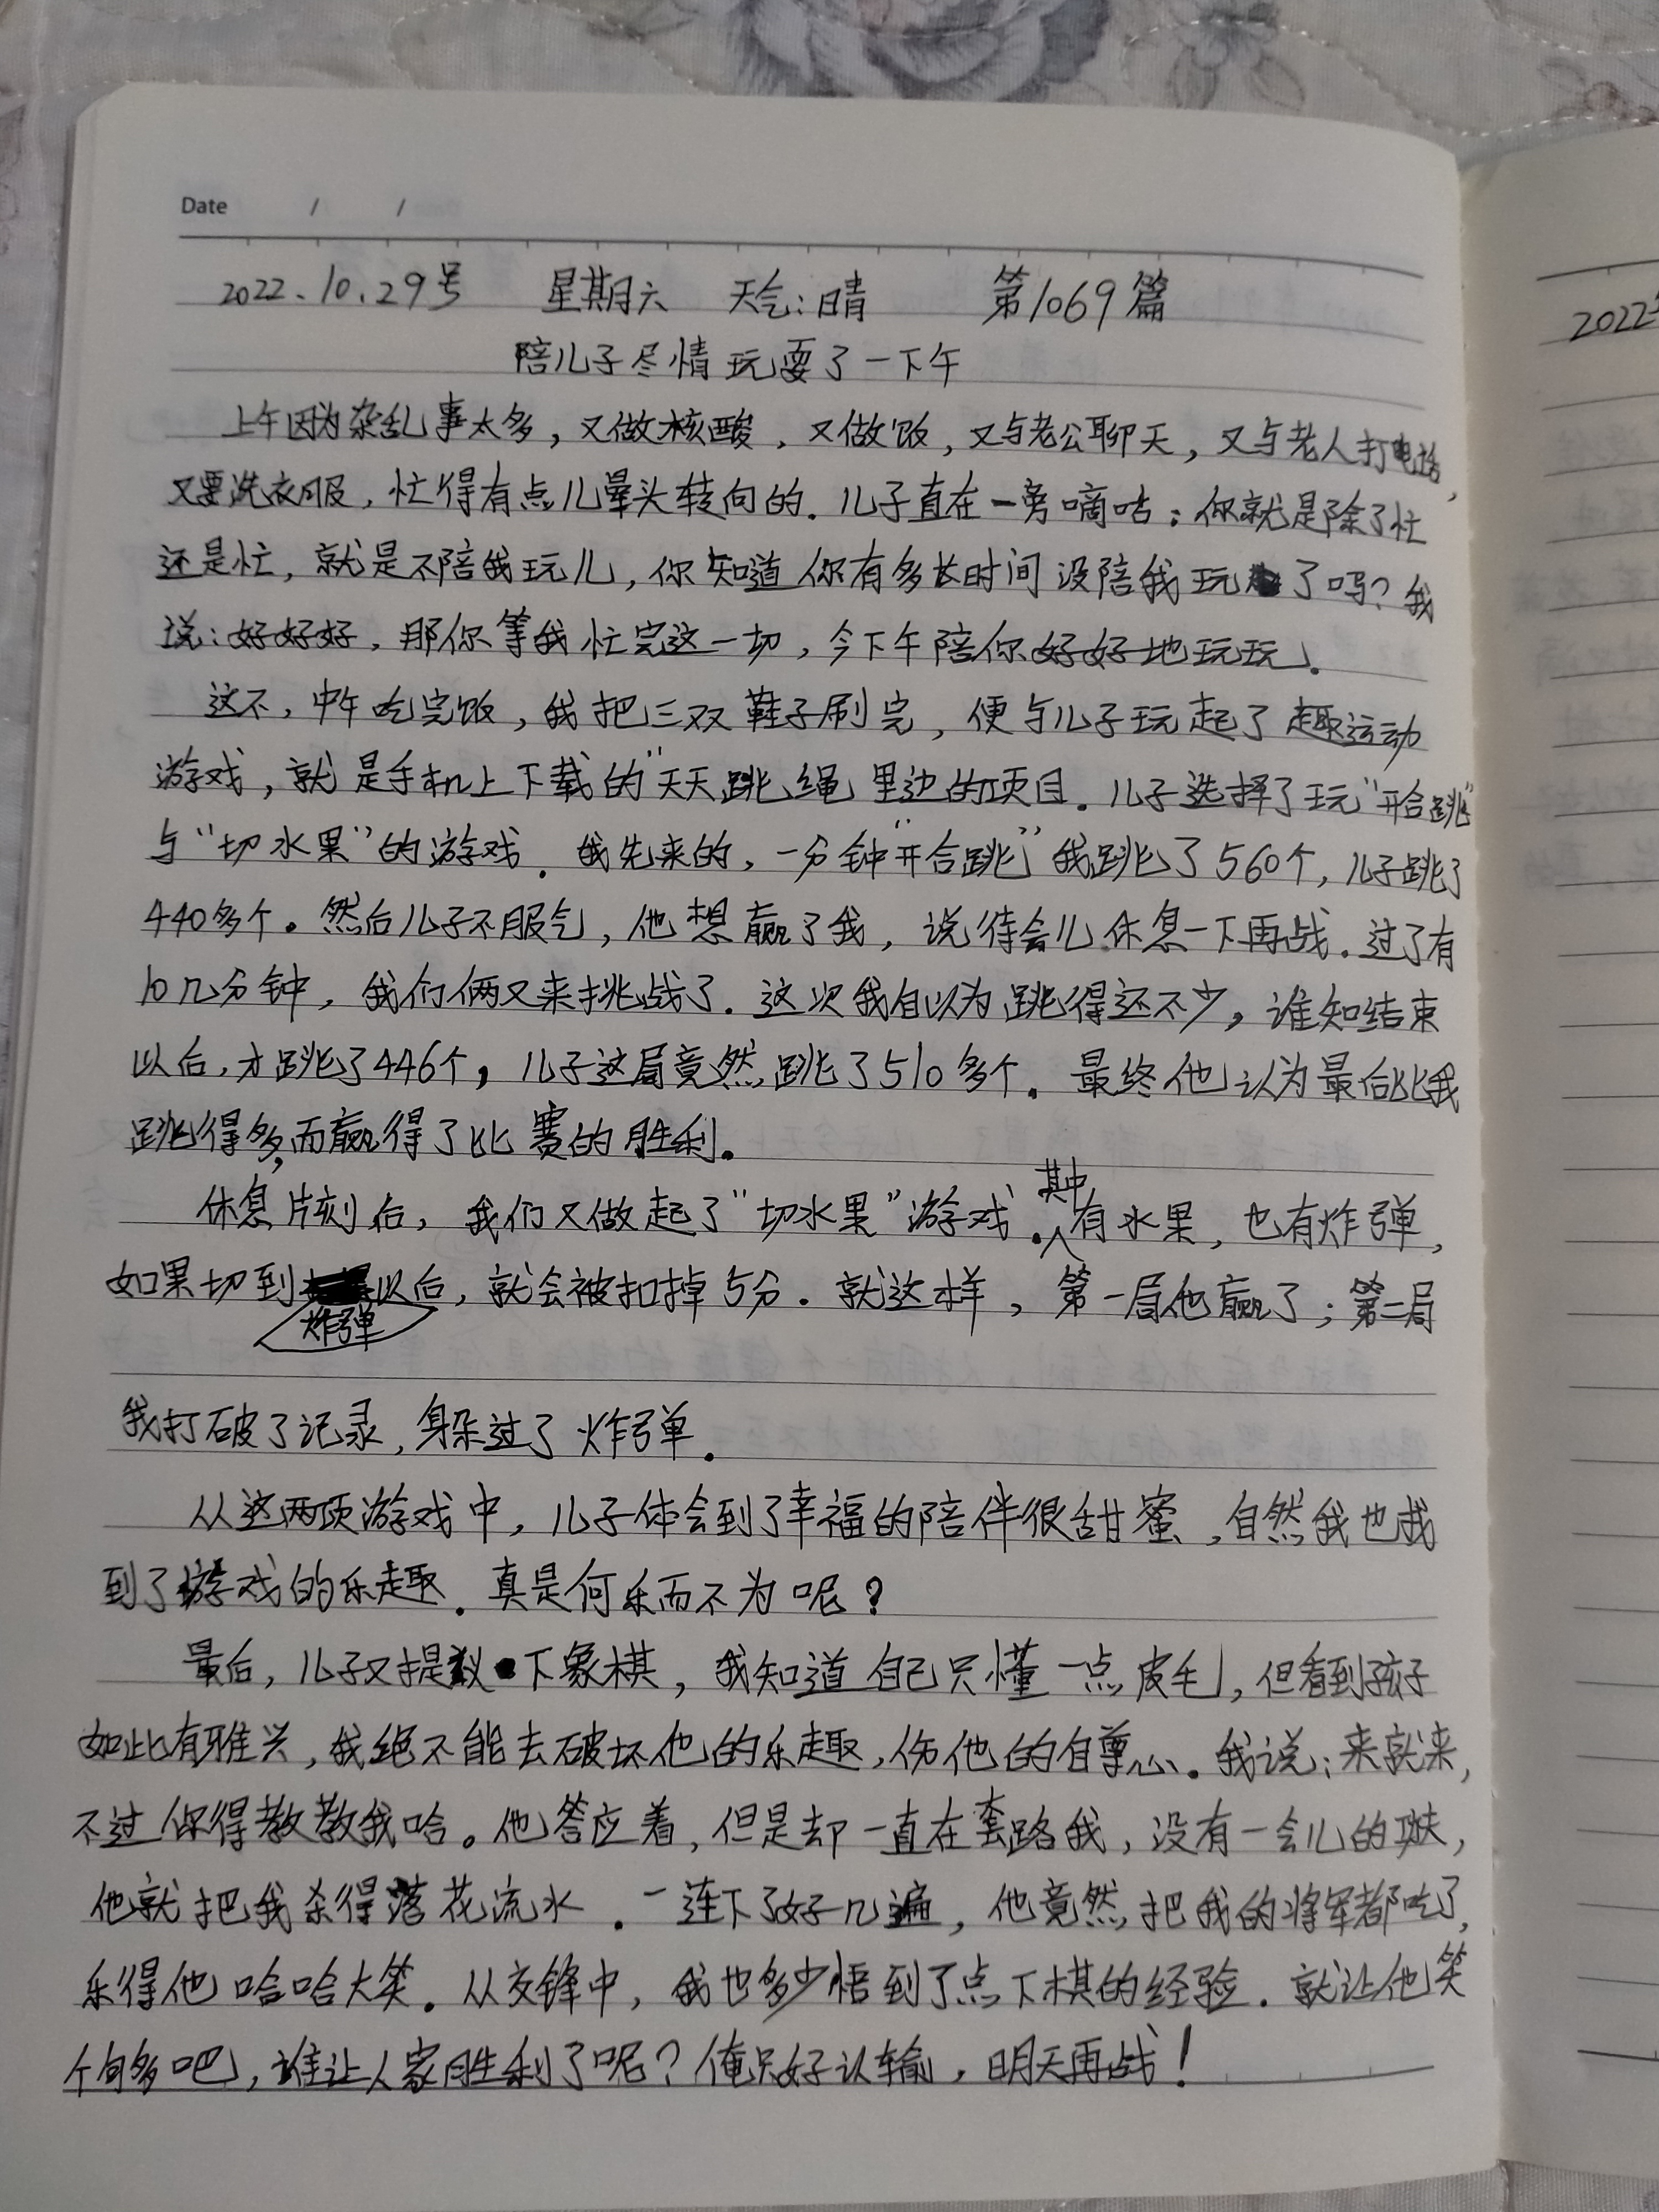 Date / /
2022.10.29号 星期六 天气:晴 第1069篇
陪儿子尽情玩耍了一下午
上午因为杂乱事太多,又做核酸,又做饭,又与老公聊天,又与老人打电话,
又要洗衣服,忙得有点儿晕头转向的.儿子直在一旁嘀咕:你就是除了忙
还是忙,就是不陪我玩儿,你知道你有多长时间没陪我玩了吗?我
说:好好好,那你等我忙完这一切,今下午陪你好好地玩玩.
这不,中午吃完饭,我把三双鞋子刷完,便与儿子玩起了趣运动
游戏,就是手机上下载的“天天跳绳里边的项目.儿子选择了玩“开合跳”
与“切水果”的游戏.我先来的,一分钟“开合跳”我跳了560个,儿子跳了
440多个。然后儿子不服气,他想赢了我,说待会儿休息一下再战.过了有
10几分钟,我们俩又来挑战了.这次我自以为跳得还不少,谁知结束
以后,才跳了446个,儿子这局竟然跳了510多个.最终他认为最后比我
跳得多,而赢得了比赛的胜利。
休息片刻后,我们又做起了“切水果”游戏.其中有水果,也有炸弹,
如果切到炸弹以后,就会被扣掉5分.就这样,第一局他赢了;第二局
我打破了记录,躲过了炸弹.
从这两项游戏中,儿子体会到了幸福的陪伴很甜蜜,自然我也找
到了游戏的乐趣.真是何乐而不为呢?
最后,儿子又提议下象棋,我知道自己只懂一点皮毛,但看到孩子
如此有雅兴,我绝不能去破坏他的乐趣,伤他的自尊心.我说:来就来,
不过你得教教我哈。他答应着,但是却一直在套路我,没有一会儿的功夫,
他就把我杀得落花流水.一连下了好几遍,他竟然把我的将军都吃了,
乐得他哈哈大笑.从交锋中,我也多少悟到了点下棋的经验.就让他笑
个够吧,谁让人家胜利了呢?俺只好认输,明天再战!
2022